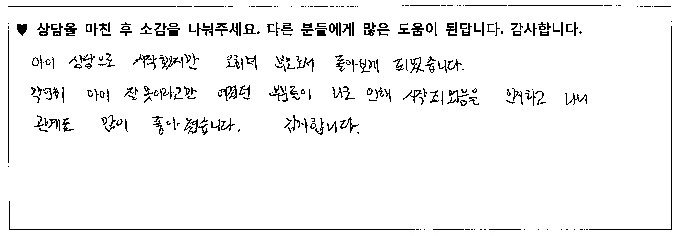 ♥ 상담을 마친 후 소감을 나눠주세요. 다른 분들에게 많은 도움이 된답니다. 감사합니다.
아이 상담으로 시작했지만 오히려 부모로서 돌아보게 되었습니다.
막연히 아이 잘못이라고만 여겼던 부분들이 나로 인해 시작되었음을 인지하고 나니
관계도 많이 좋아졌습니다. 감사합니다.